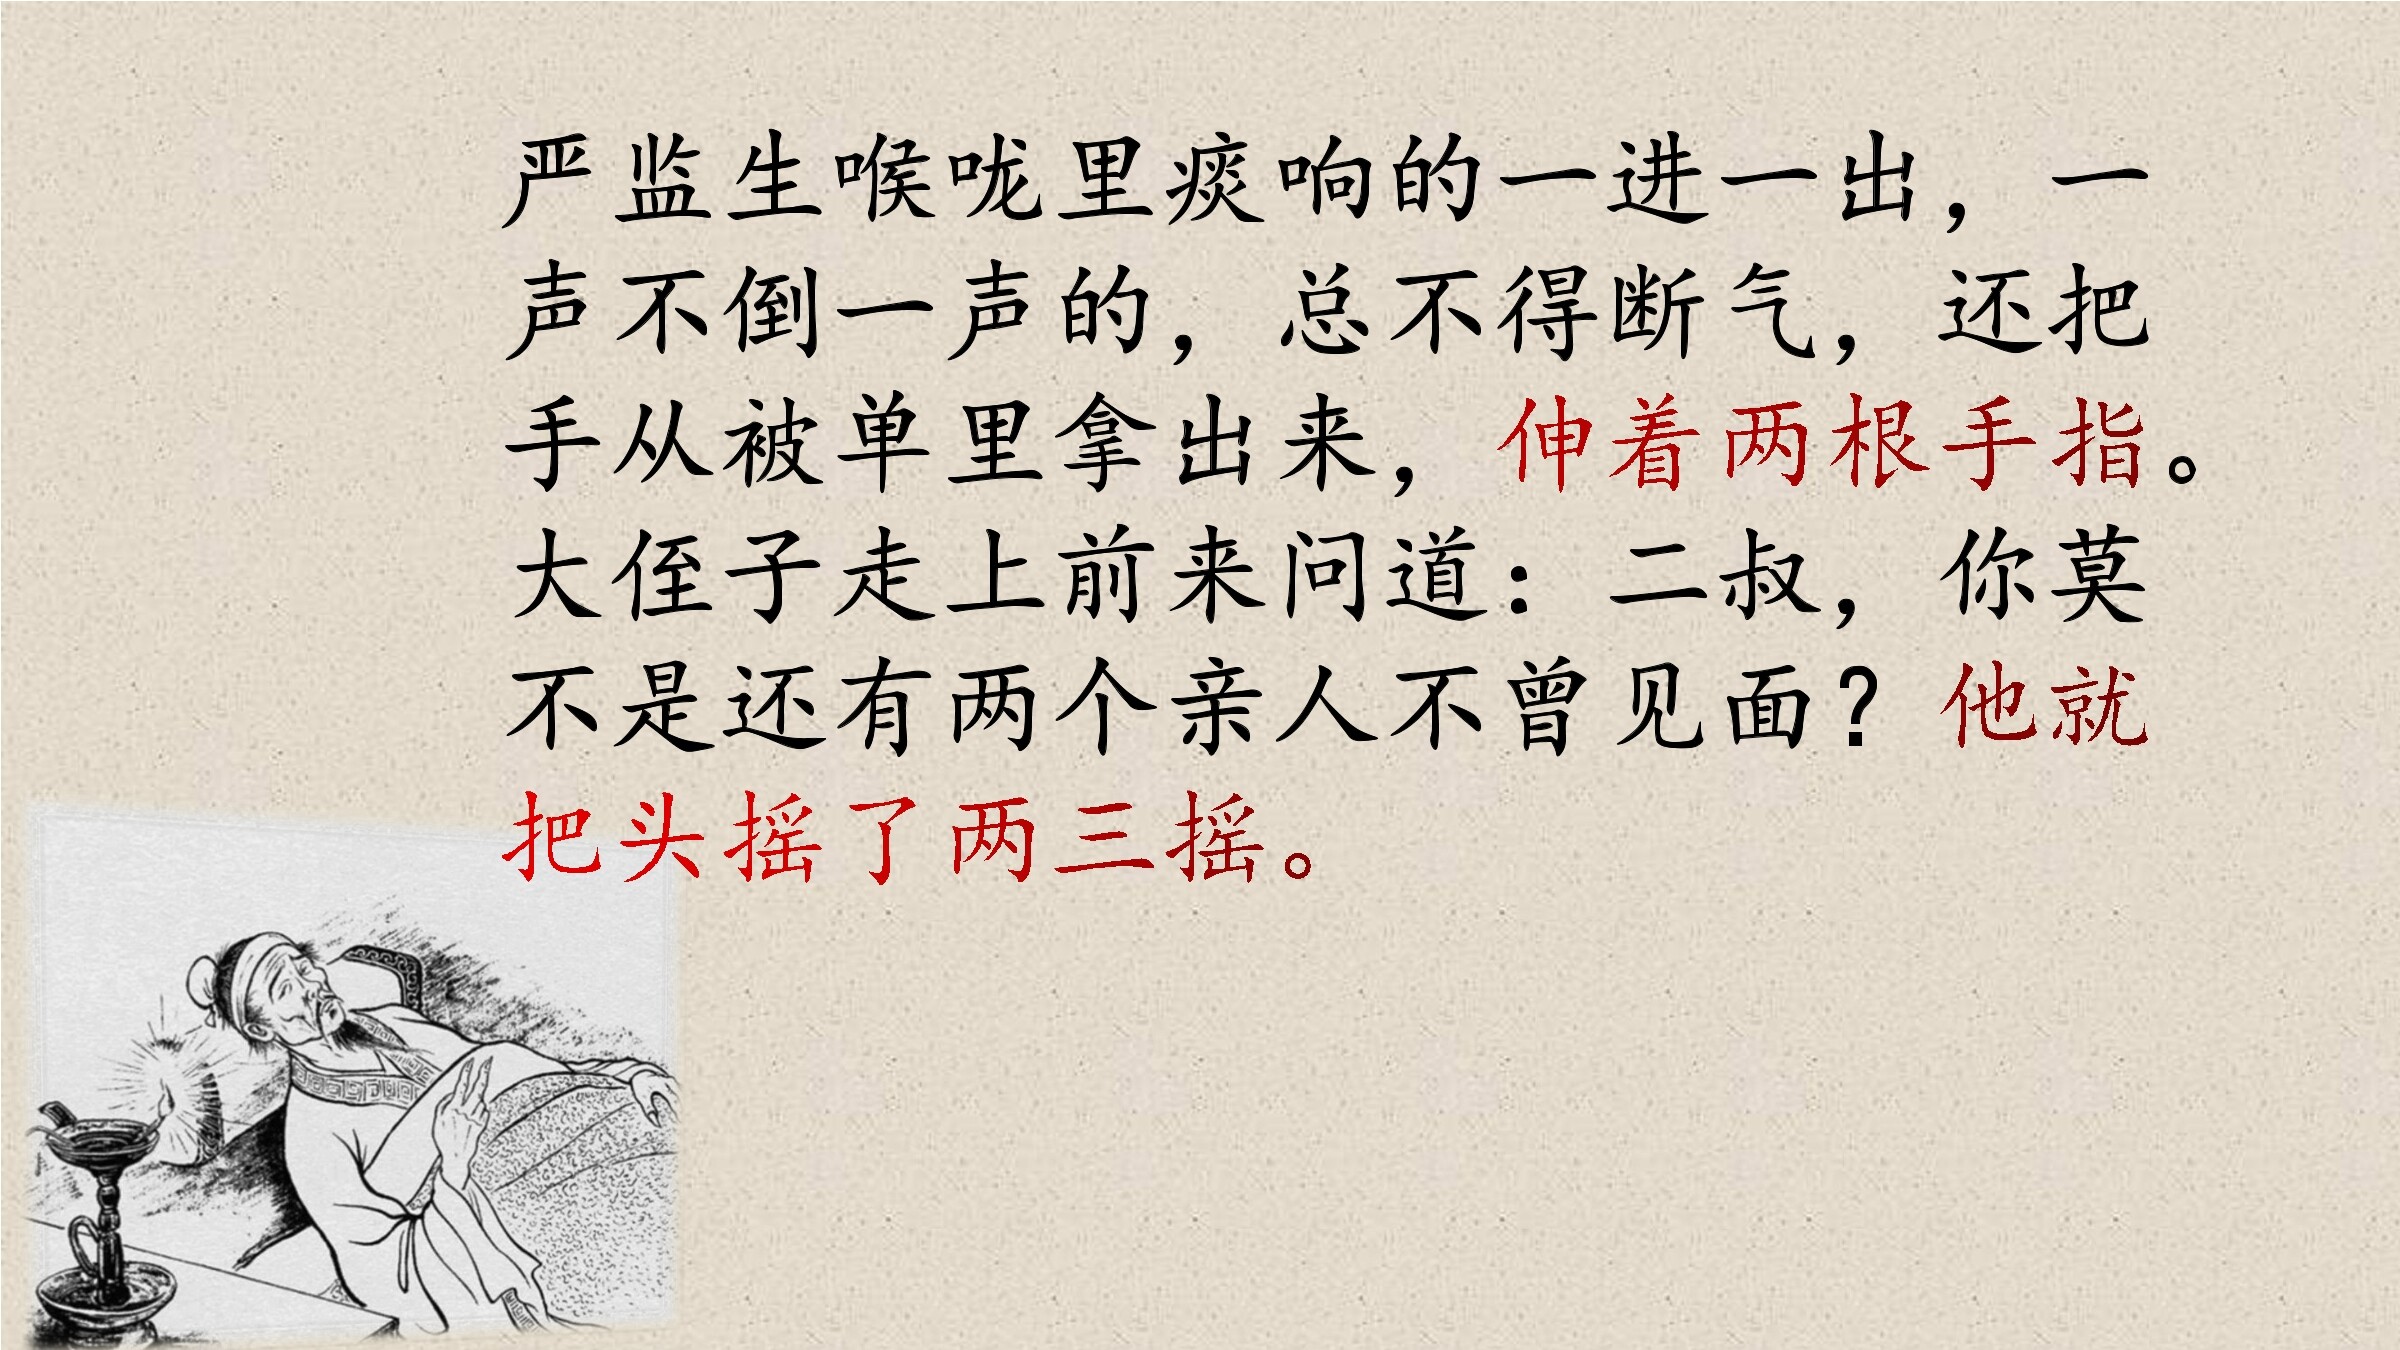 严监生喉咙里痰响的一进一出，一
声不倒一声的，总不得断气，还把
手从被单里拿出来，伸着两根手指。
大侄子走上前来问道：二叔，你莫
不是还有两个亲人不曾见面？他就
把头摇了两三摇。